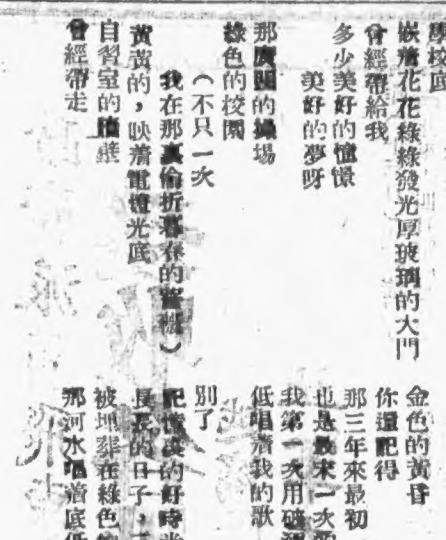 學校底
嵌着花花綠綠發光厚玻璃的大門
曾經帶給我
多少美好的憧憬
美好的夢呀
那廣闊的操場
綠色的校園
（不只一次
我在那裏偷折暮春的薔薇）
黃黃的，映着電燈光底
自習室的牆壁
曾經帶走
金色的黃昏
你還記得
那三年來最初
也是最末一次
我第一次用破
低唱着我的歌
別了
記憶裏的好時光
長長的日子，
被埋葬在綠色
那河水唱着底低